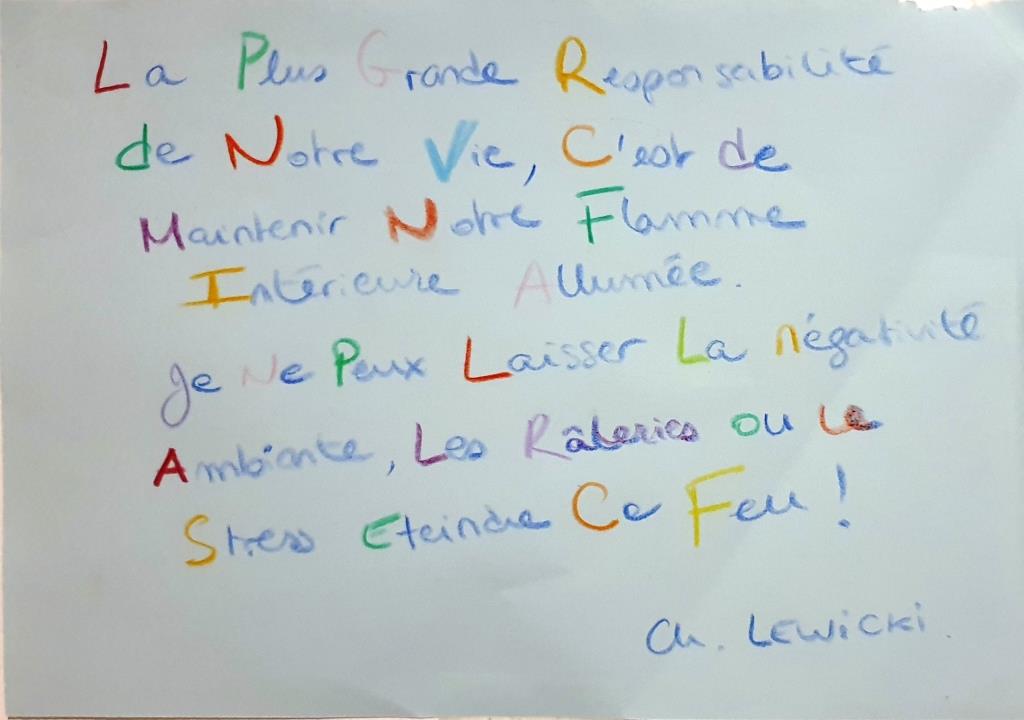 La Plus Grande Responsabilité
de Notre Vie, C'est de
Maintenir Notre Flamme
Intérieure Allumée.
Je Ne Peux Laisser La négativité
Ambiante, Les Râleries ou Le
Stress Eteindre Ce Feu !
Ch. LEWICKI.